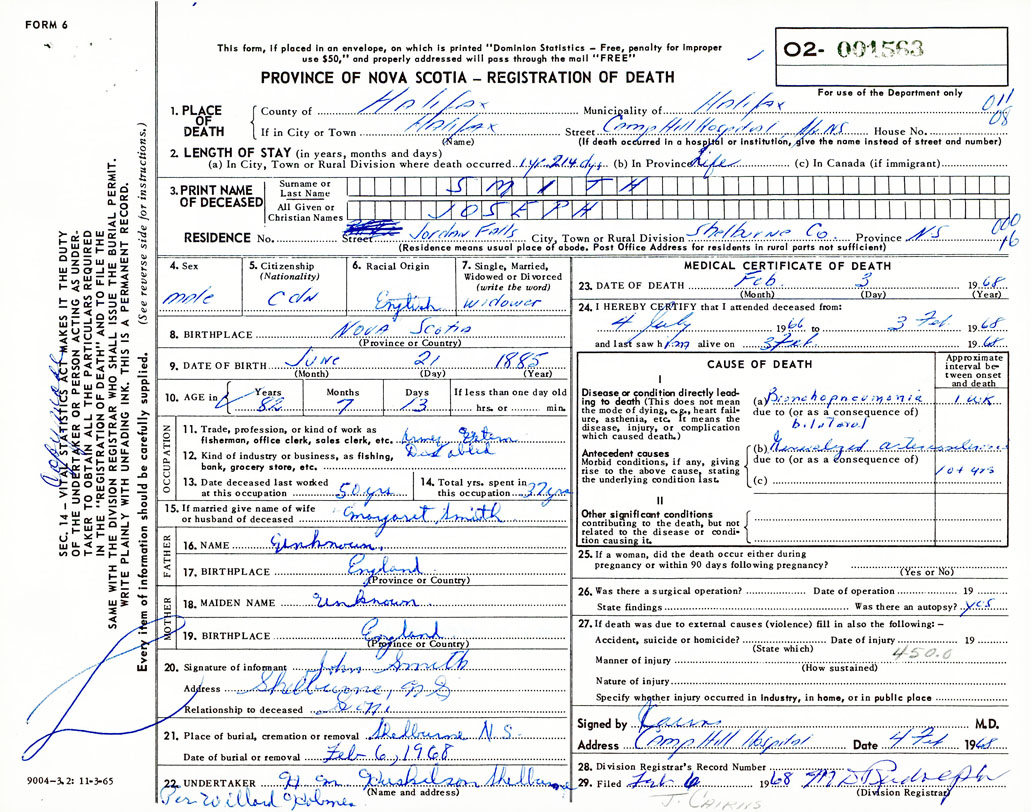 FORM 6
This form, if placed in an envelope, on which is printed "Dominion Statistics – Free, penalty for improper
use $50," and properly addressed will pass through the mail "FREE"
PROVINCE OF NOVA SCOTIA – REGISTRATION OF DEATH
O2- 001563
For use of the Department only
011
08
1. PLACE OF DEATH
County of Halifax Municipality of Halifax
If in City or Town Halifax Street Camp Hill Hospital, Hfx NS House No.
(Name) (If death occurred in a hospital or institution, give the name instead of street and number)
2. LENGTH OF STAY (in years, months and days)
(a) In City, Town or Rural Division where death occurred 1 yr. 214 dys. (b) In Province Life (c) In Canada (if immigrant)
3. PRINT NAME OF DECEASED
Surname or Last Name SMITH
All Given or Christian Names JOSEPH
RESIDENCE No. Street Jordan Falls City, Town or Rural Division Shelburne Co. Province NS
000
16
(Residence means usual place of abode. Post Office Address for residents in rural parts not sufficient)
4. Sex
male
5. Citizenship (Nationality)
CDN
6. Racial Origin
English
7. Single, Married, Widowed or Divorced (write the word)
widower
8. BIRTHPLACE NOVA SCOTIA
(Province or Country)
9. DATE OF BIRTH JUNE 21 1885
(Month) (Day) (Year)
10. AGE in
Years 82
Months 7
Days 13
If less than one day old
hrs. or min.
OCCUPATION
11. Trade, profession, or kind of work as
fisherman, office clerk, sales clerk, etc. Army
12. Kind of industry or business, as fishing,
bank, grocery store, etc. Disabled
13. Date deceased last worked
at this occupation 50 yrs
14. Total yrs. spent in
this occupation 32 yrs
15. If married give name of wife
or husband of deceased Margaret Smith
FATHER
16. NAME Unknown.
17. BIRTHPLACE England
(Province or Country)
MOTHER
18. MAIDEN NAME Unknown
19. BIRTHPLACE England
(Province or Country)
20. Signature of informant John Smith
Address Shelburne, NS
Relationship to deceased Son
21. Place of burial, cremation or removal Shelburne N.S.
Date of burial or removal Feb 6, 1968
22. UNDERTAKER H M Shelburne
(Name and address)
Per Willard Holmes
MEDICAL CERTIFICATE OF DEATH
23. DATE OF DEATH Feb. 3 1968
(Month) (Day) (Year)
24. I HEREBY CERTIFY that I attended deceased from:
4 July 1966 to 3 Feb 1968
and last saw him alive on 3 Feb 1968
CAUSE OF DEATH
Approximate interval between onset and death
I
Disease or condition directly lead-
ing to death (This does not mean
the mode of dying, e.g., heart fail-
ure, asthenia, etc. It means the
disease, injury, or complication
which caused death.)
(a) Bronchopneumonia 1 wk
due to (or as a consequence of)
bilateral
Antecedent causes
Morbid conditions, if any, giving
rise to the above cause, stating
the underlying condition last.
(b) Generalized arteriosclerosis
due to (or as a consequence of)
10+ yrs
(c)
II
Other significant conditions
contributing to the death, but not
related to the disease or condi-
tion causing it.
25. If a woman, did the death occur either during
pregnancy or within 90 days following pregnancy?
(Yes or No)
26. Was there a surgical operation? Date of operation 19
State findings Was there an autopsy? yes
27. If death was due to external causes (violence) fill in also the following: –
Accident, suicide or homicide? Date of injury 19
(State which)
450.0
Manner of injury
(How sustained)
Nature of injury
Specify whether injury occurred in industry, in home, or in public place
Signed by Cairns M.D.
Address Camp Hill Hospital Date 4 Feb 1968
28. Division Registrar's Record Number
29. Filed Feb 6 1968
(Division Registrar)
J. CAIRNS
SEC. 14 – VITAL STATISTICS ACT MAKES IT THE DUTY
OF THE UNDERTAKER OR PERSON ACTING AS UNDER-
TAKER TO OBTAIN ALL THE PARTICULARS REQUIRED
IN THE "REGISTRATION OF DEATH" AND TO FILE THE
SAME WITH THE DIVISION REGISTRAR WHO SHALL ISSUE THE BURIAL PERMIT.
WRITE PLAINLY WITH UNFADING INK. THIS IS A PERMANENT RECORD.
Every item of information should be carefully supplied. (See reverse side for instructions.)
9004-3.2: 11-3-65